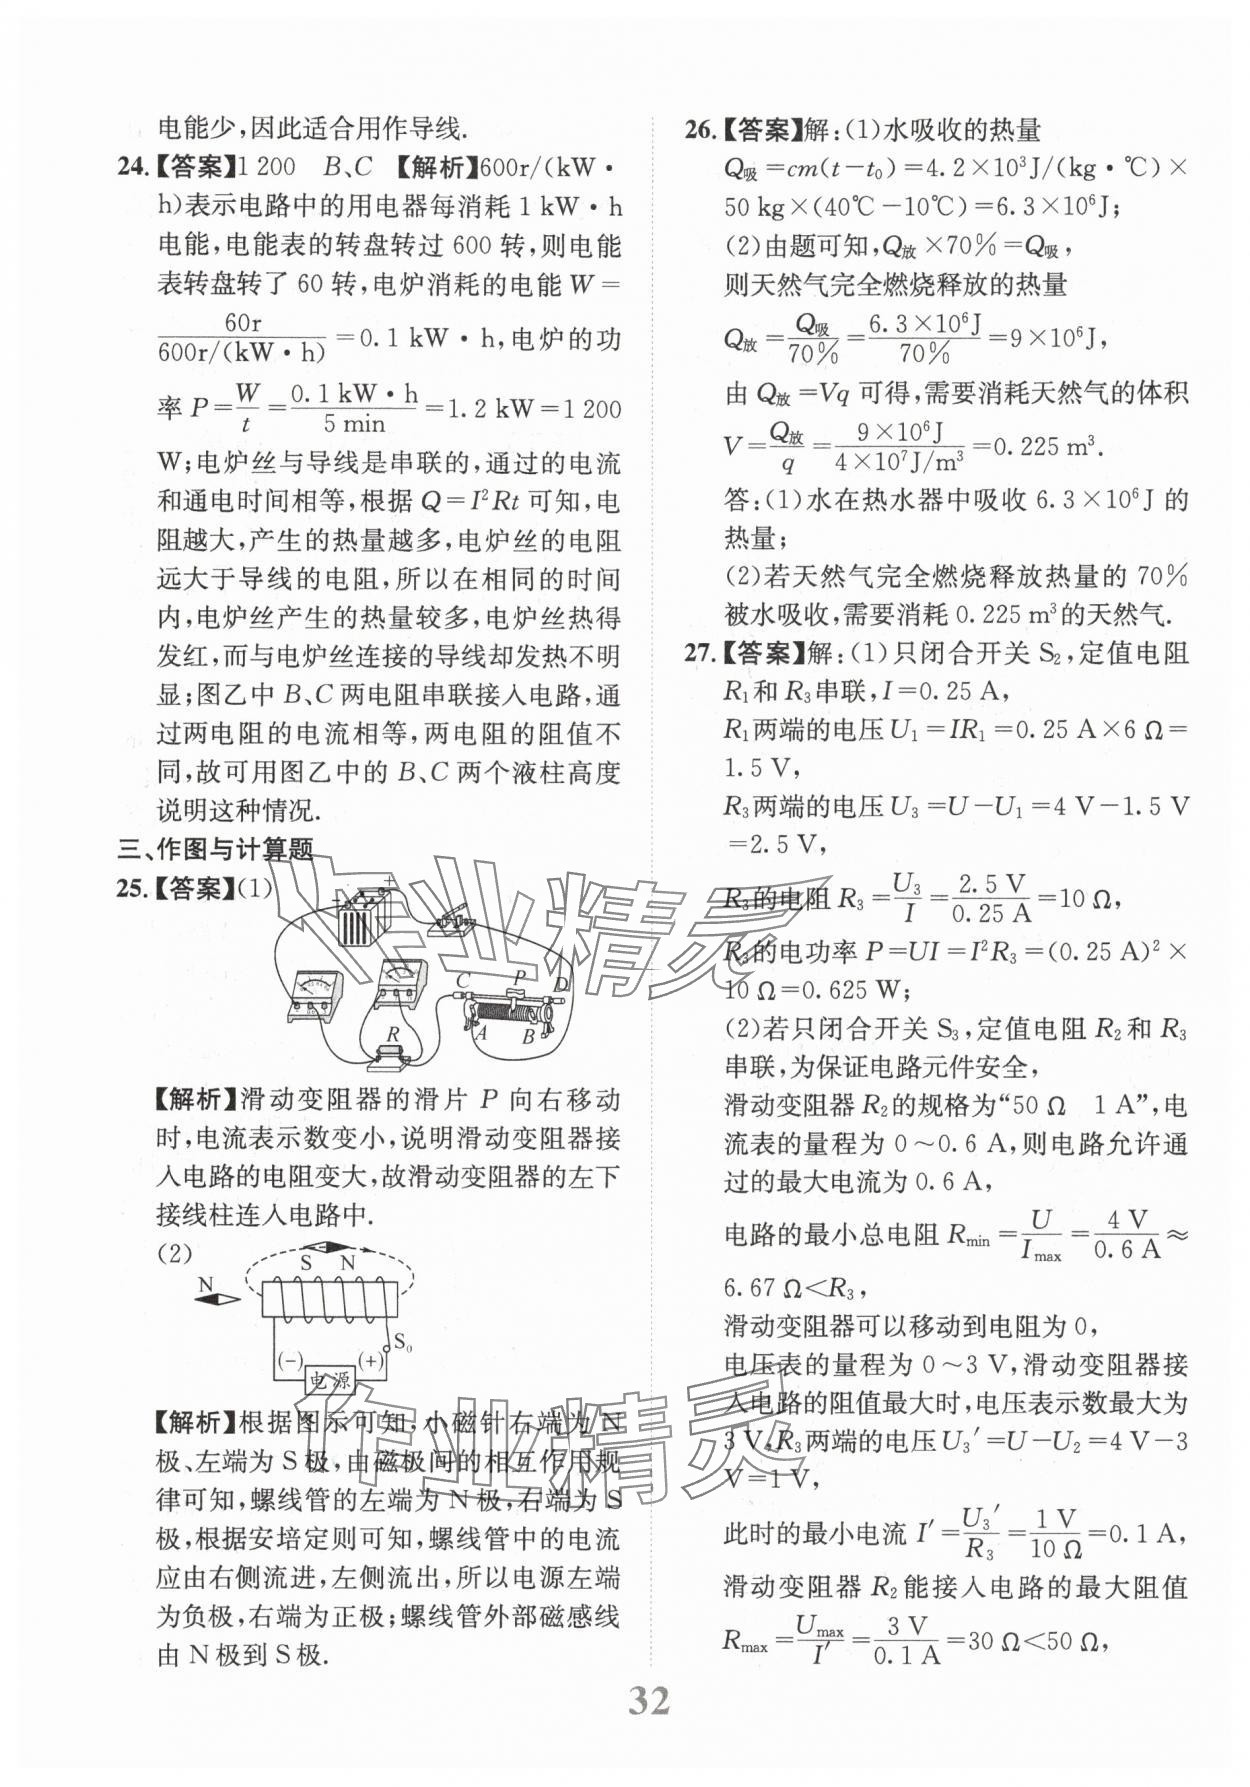 电能少,因此适合用作导线.
24.【答案】1 200　B、C　【解析】600r/(kW·
h)表示电路中的用电器每消耗 1 kW·h
电能,电能表的转盘转过 600 转,则电能
表转盘转了 60 转,电炉消耗的电能 W=
60r/600r/(kW·h)=0.1 kW·h,电炉的功
率 P=W/t=0.1 kW·h/5 min=1.2 kW=1 200
W;电炉丝与导线是串联的,通过的电流
和通电时间相等,根据 Q=I²Rt 可知,电
阻越大,产生的热量越多,电炉丝的电阻
远大于导线的电阻,所以在相同的时间
内,电炉丝产生的热量较多,电炉丝热得
发红,而与电炉丝连接的导线却发热不明
显;图乙中 B、C 两电阻串联接入电路,通
过两电阻的电流相等,两电阻的阻值不
同,故可用图乙中的 B、C 两个液柱高度
说明这种情况.
三、作图与计算题
25.【答案】(1)
+
−
C
P
D
A
B
R
【解析】滑动变阻器的滑片 P 向右移动
时,电流表示数变小,说明滑动变阻器接
入电路的电阻变大,故滑动变阻器的左下
接线柱连入电路中.
(2)
S N
N
S₀
(−) (+)
电源
【解析】根据图示可知,小磁针右端为 N
极、左端为 S 极,由磁极间的相互作用规
律可知,螺线管的左端为 N 极,右端为 S
极,根据安培定则可知,螺线管中的电流
应由右侧流进,左侧流出,所以电源左端
为负极,右端为正极;螺线管外部磁感线
由 N 极到 S 极.
26.【答案】解:(1)水吸收的热量
Q吸=cm(t−t₀)=4.2×10³J/(kg·℃)×
50 kg×(40℃−10℃)=6.3×10⁶J;
(2)由题可知,Q放×70%=Q吸,
则天然气完全燃烧释放的热量
Q放=Q吸/70%=6.3×10⁶J/70%=9×10⁶J,
由 Q放=Vq 可得,需要消耗天然气的体积
V=Q放/q=9×10⁶J/4×10⁷J/m³=0.225 m³.
答:(1)水在热水器中吸收 6.3×10⁶J 的
热量;
(2)若天然气完全燃烧释放热量的 70%
被水吸收,需要消耗 0.225 m³的天然气.
27.【答案】解:(1)只闭合开关 S₂,定值电阻
R₁和 R₃串联,I=0.25 A,
R₁两端的电压 U₁=IR₁=0.25 A×6 Ω=
1.5 V,
R₃两端的电压 U₃=U−U₁=4 V−1.5 V
=2.5 V,
R₃的电阻 R₃=U₃/I=2.5 V/0.25 A=10 Ω,
R₃的电功率 P=UI=I²R₃=(0.25 A)²×
10 Ω=0.625 W;
(2)若只闭合开关 S₃,定值电阻 R₂和 R₃
串联,为保证电路元件安全,
滑动变阻器 R₂的规格为“50 Ω　1 A”,电
流表的量程为 0～0.6 A,则电路允许通
过的最大电流为 0.6 A,
电路的最小总电阻 Rmin=U/Imax=4 V/0.6 A≈
6.67 Ω<R₃,
滑动变阻器可以移动到电阻为 0,
电压表的量程为 0～3 V,滑动变阻器接
入电路的阻值最大时,电压表示数最大为
3 V,R₃两端的电压 U₃′=U−U₂=4 V−3
V=1 V,
此时的最小电流 I′=U₃′/R₃=1 V/10 Ω=0.1 A,
滑动变阻器 R₂能接入电路的最大阻值
Rmax=Umax/I′=3 V/0.1 A=30 Ω<50 Ω,
32
作业精灵
作业精灵